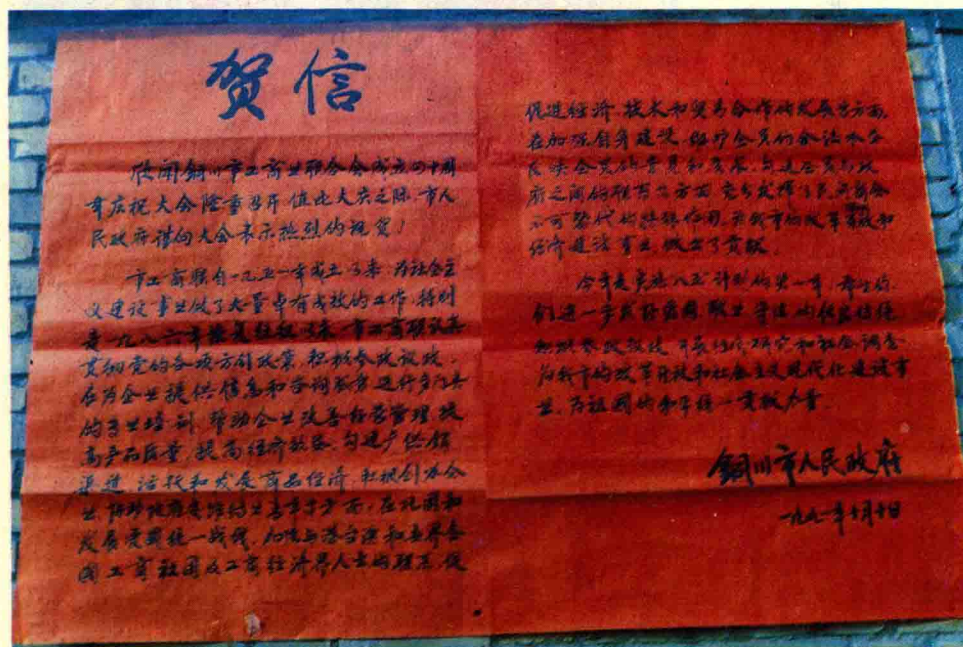 贺信
欣闻铜川市工商业联合会成立四十周
年庆祝大会隆重召开,值此大庆之际,市人
民政府谨向大会表示热烈的祝贺!
市工商联自一九五一年成立以来,为社会主
义建设事业做了大量卓有成效的工作,特别
是一九八六年恢复组织以来,市工商联认真
贯彻党的各项方针政策,积极参政议政,
在为企业提供信息和咨询服务,进行多门类
的专业培训,帮助企业改善经营管理,提
高产品质量,提高经济效益,沟通产供销
渠道,活跃和发展商品经济,积极创办企
业,等方面,在巩固和
发展爱国统一战线,加强与港台澳和世界各
国工商社团及工商经济界人士的联系,促
促进经济、技术和贸易合作的发展等方面,
在加强自身建设,维护会员的合法权益
反映会员的意见和要求,沟通会员与政
府之间的联系等方面,充分发挥了
不可替代的作用,为我市的改革开放和
经济建设事业做出了贡献。
今年是实施八五计划的第一年,希望你
们进一步发扬爱国、敬业、守法的优良传统
积极参政议政,开展经济研究和社会调查
为我市的改革开放和社会主义现代化建设事
业,为祖国的和平统一贡献力量。
铜川市人民政府
一九九一年十月十日